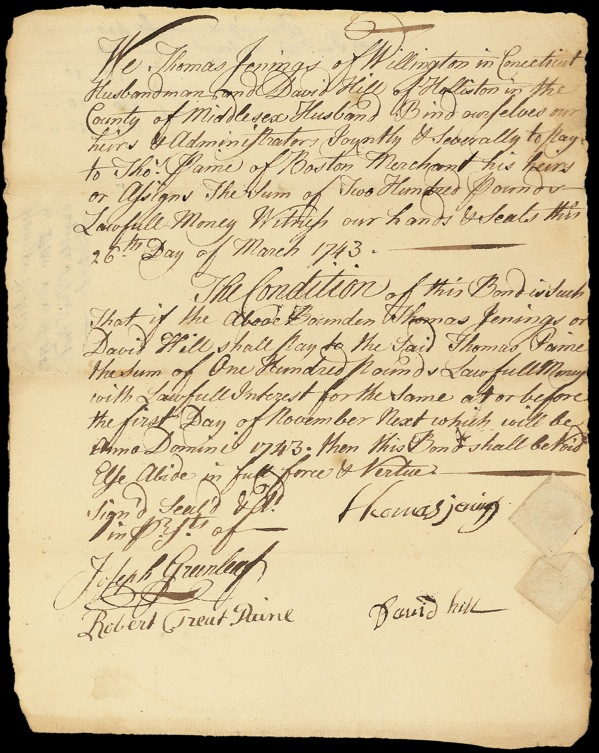 We Thomas Jenings of Willington in Conecticut
Husbandman and David Hill of Holliston in the
County of Middlesex Husband Bind ourselves our
heirs & Administrators Joyntly & Severally to pay
to Thos. Paine of Boston Merchant his heirs
or Assigns The Sum of Two Hundred Pounds
Lawfull Money Witness our hands & Seals this
26th Day of March 1743.
The Condition of this Bond is Such
That if the Above Bounden Thomas Jenings or
David Hill shall pay to the Said Thomas Paine
the Sum of One Hundred Pounds Lawfull Money
with Lawfull Interest for the Same at or before
the first Day of November Next which will be
Anno Domini 1743. then this Bond shall be Void
Else Abide in full force & Vertue.
Sign'd Seal'd & Dd
in Prsts of
Thomas jening
Joseph Greenleaf
Robert Treat Paine
David hill